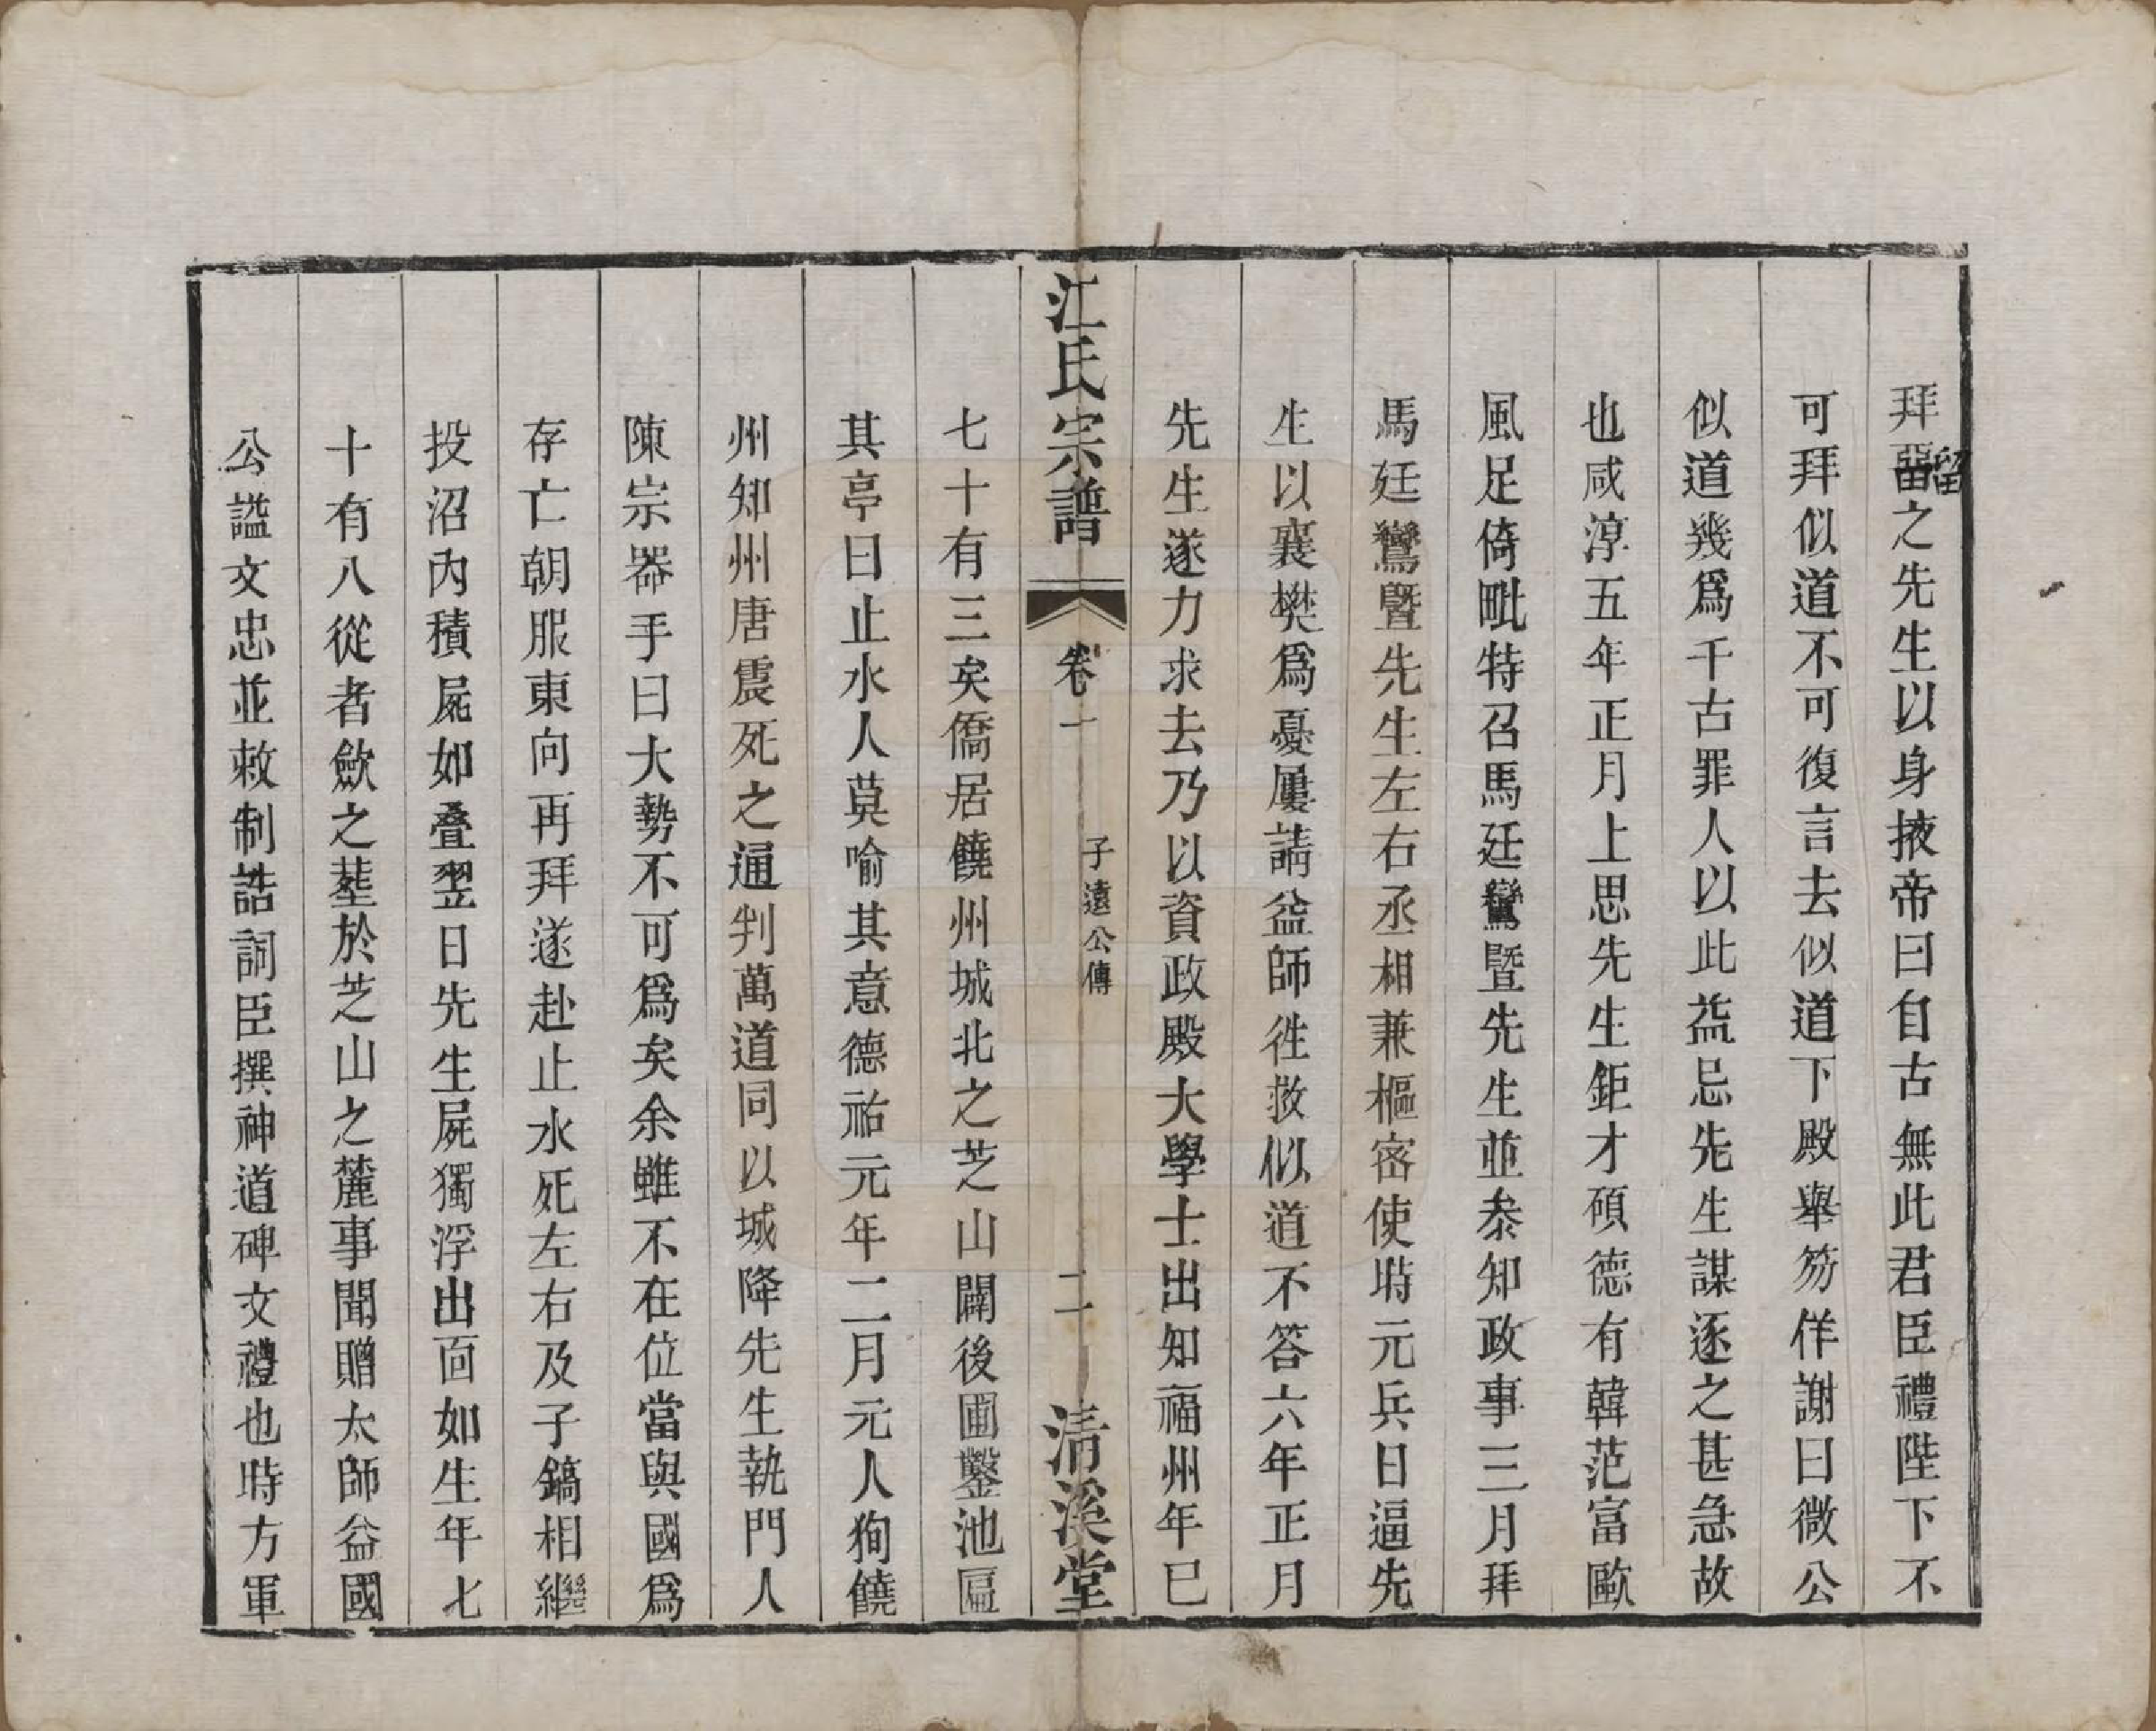 拜畱之先生以身掖帝曰自古無此君臣禮陛下不
留
可拜似道不可復言去似道下殿舉笏佯謝曰微公
似道幾爲千古罪人以此益忌先生謀逐之甚急故
也咸淳五年正月上思先生鉅才碩德有韓范富歐
風足倚毗特召馬廷鸞暨先生並叅知政事三月拜
馬廷鸞暨先生左右丞相兼樞宻使時元兵日逼先
生以襄樊爲憂屢請益師徃救似道不答六年正月
先生遂力求去乃以資政殿大學士出知福州年巳
江氏宗譜 卷一 子遠公傳 二 清溪堂
七十有三矣僑居饒州城北之芝山闢後圃鑿池匾
其亭曰止水人莫喻其意德祐元年二月元人狥饒
州知州唐震死之通判萬道同以城降先生執門人
陳宗器手曰大勢不可爲矣余雖不在位當與國爲
存亡朝服東向再拜遂赴止水死左右及子鎬相繼
投沼內積屍如叠翌日先生屍獨浮出面如生年七
十有八從者歛之塟於芝山之麓事聞贈太師益國
公諡文忠並敕制誥詞臣撰神道碑文禮也時方軍